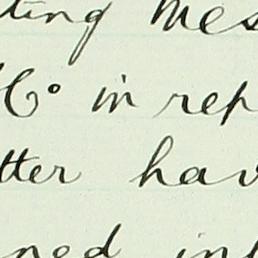 ting Mes
Co in rep
tter hav
ned inf